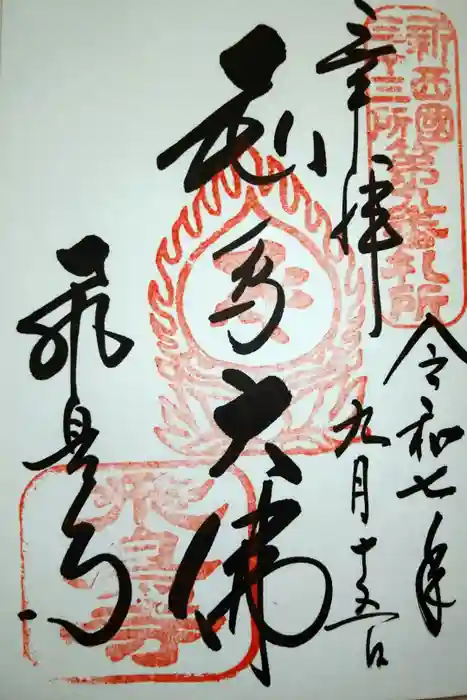 新西國
三十三所
第九番札所
奉拝
令和七年
九月十五日
飛鳥大佛
飛鳥寺
飛鳥寺